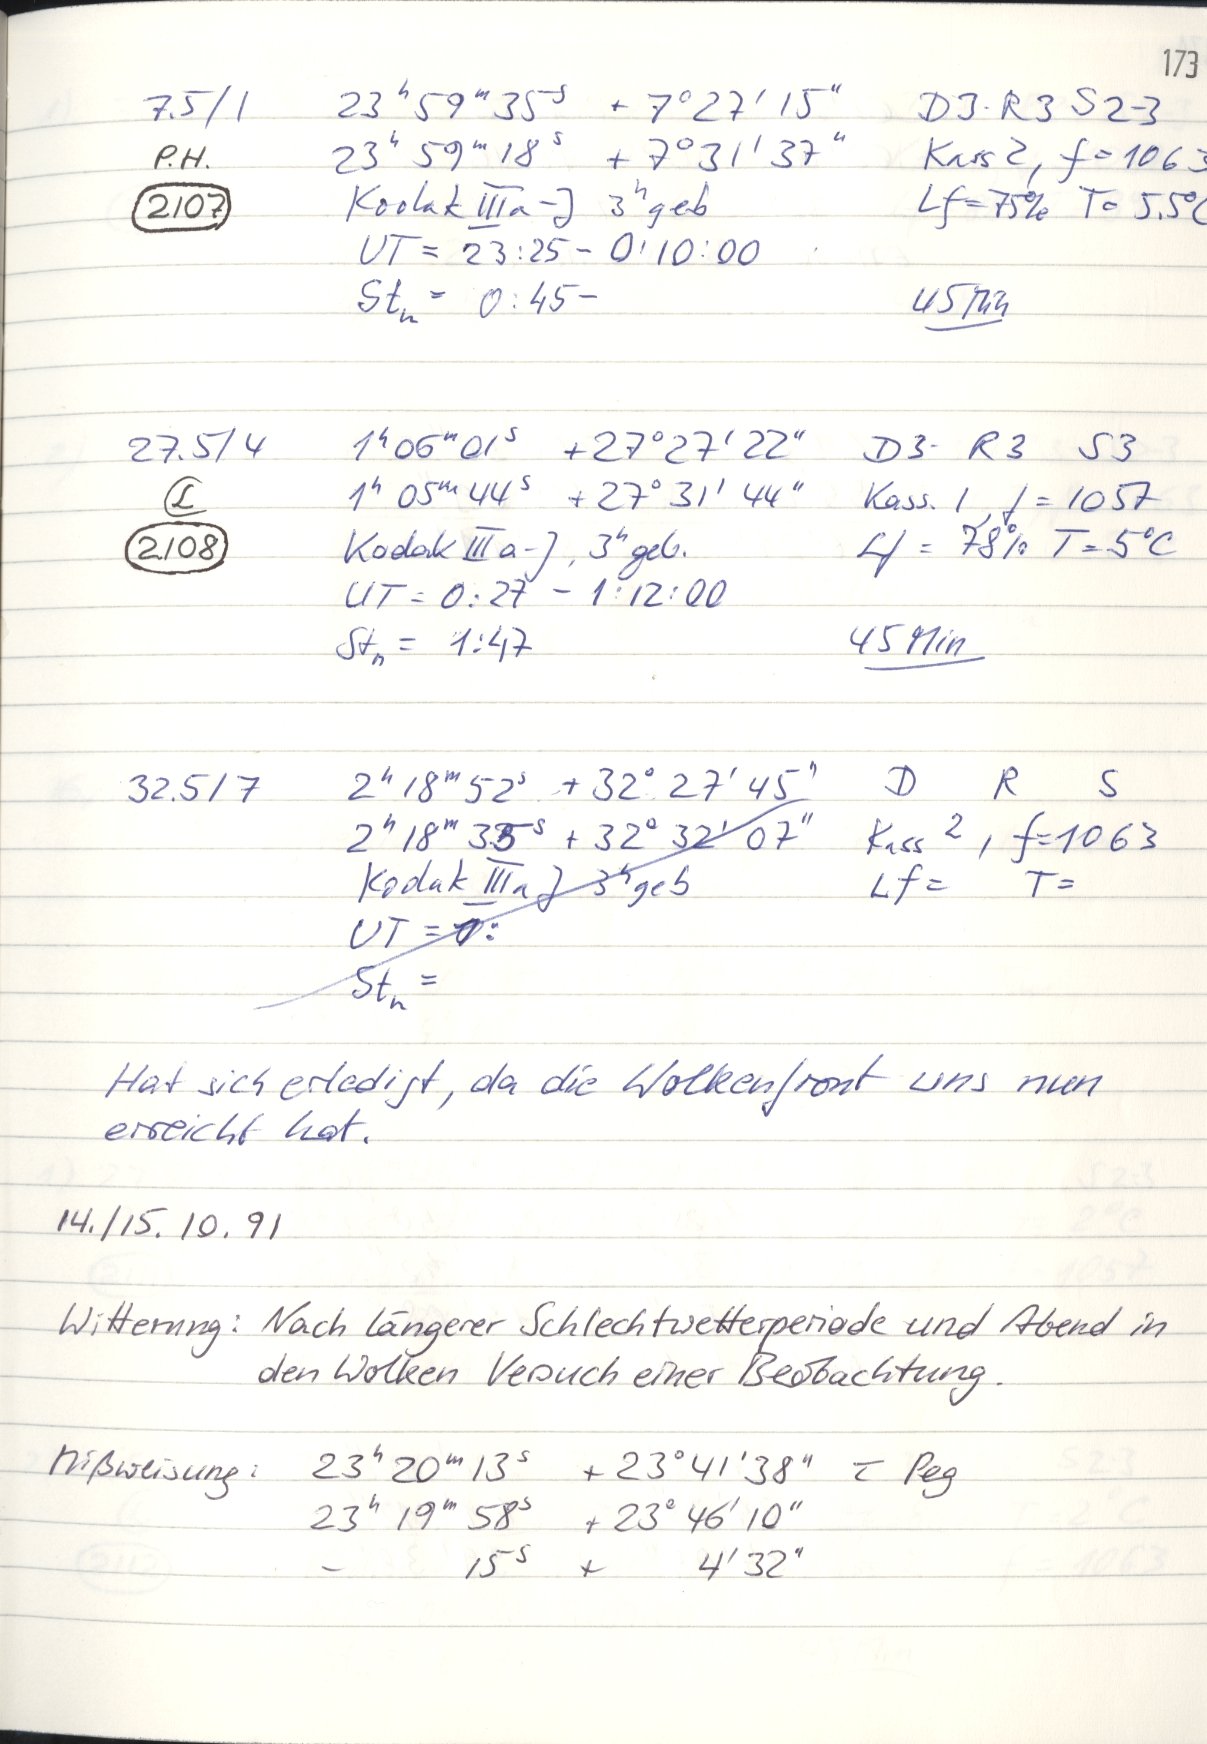 173
7.5/1 23ʰ59ᵐ35ˢ +7°27'15" D3-R3 S2-3
P.H. 23ʰ59ᵐ18ˢ +7°31'37" Kass 2, f=1063
2107 Kodak IIIa-J 3ʰ geb Lf=75% T= 5.5°C
UT = 23:25 - 0:10:00
Stₙ = 0:45- 45 Min
27.5/4 1ʰ06ᵐ01ˢ +27°27'22" D3- R3 S3
1ʰ05ᵐ44ˢ +27°31'44" Kass. 1, f=1057
2108 Kodak IIIa-J, 3ʰ geb. Lf = 78% T=5°C
UT = 0:27 - 1:12:00
Stₙ = 1:47 45 Min
32.5/7 2ʰ18ᵐ52ˢ +32°27'45" D R S
2ʰ18ᵐ35ˢ +32°32'07" Kass 2, f=1063
Kodak IIIa J 3ʰ geb Lf= T=
UT = 0:
Stₙ =
Hat sich erledigt, da die Wolkenfront uns nun
erreicht hat.
14./15.10.91
Witterung: Nach längerer Schlechtwetterperiode und Abend in
den Wolken Versuch einer Beobachtung.
Mißweisung: 23ʰ20ᵐ13ˢ +23°41'38" τ Peg
23ʰ19ᵐ58ˢ +23°46'10"
- 15ˢ + 4'32"